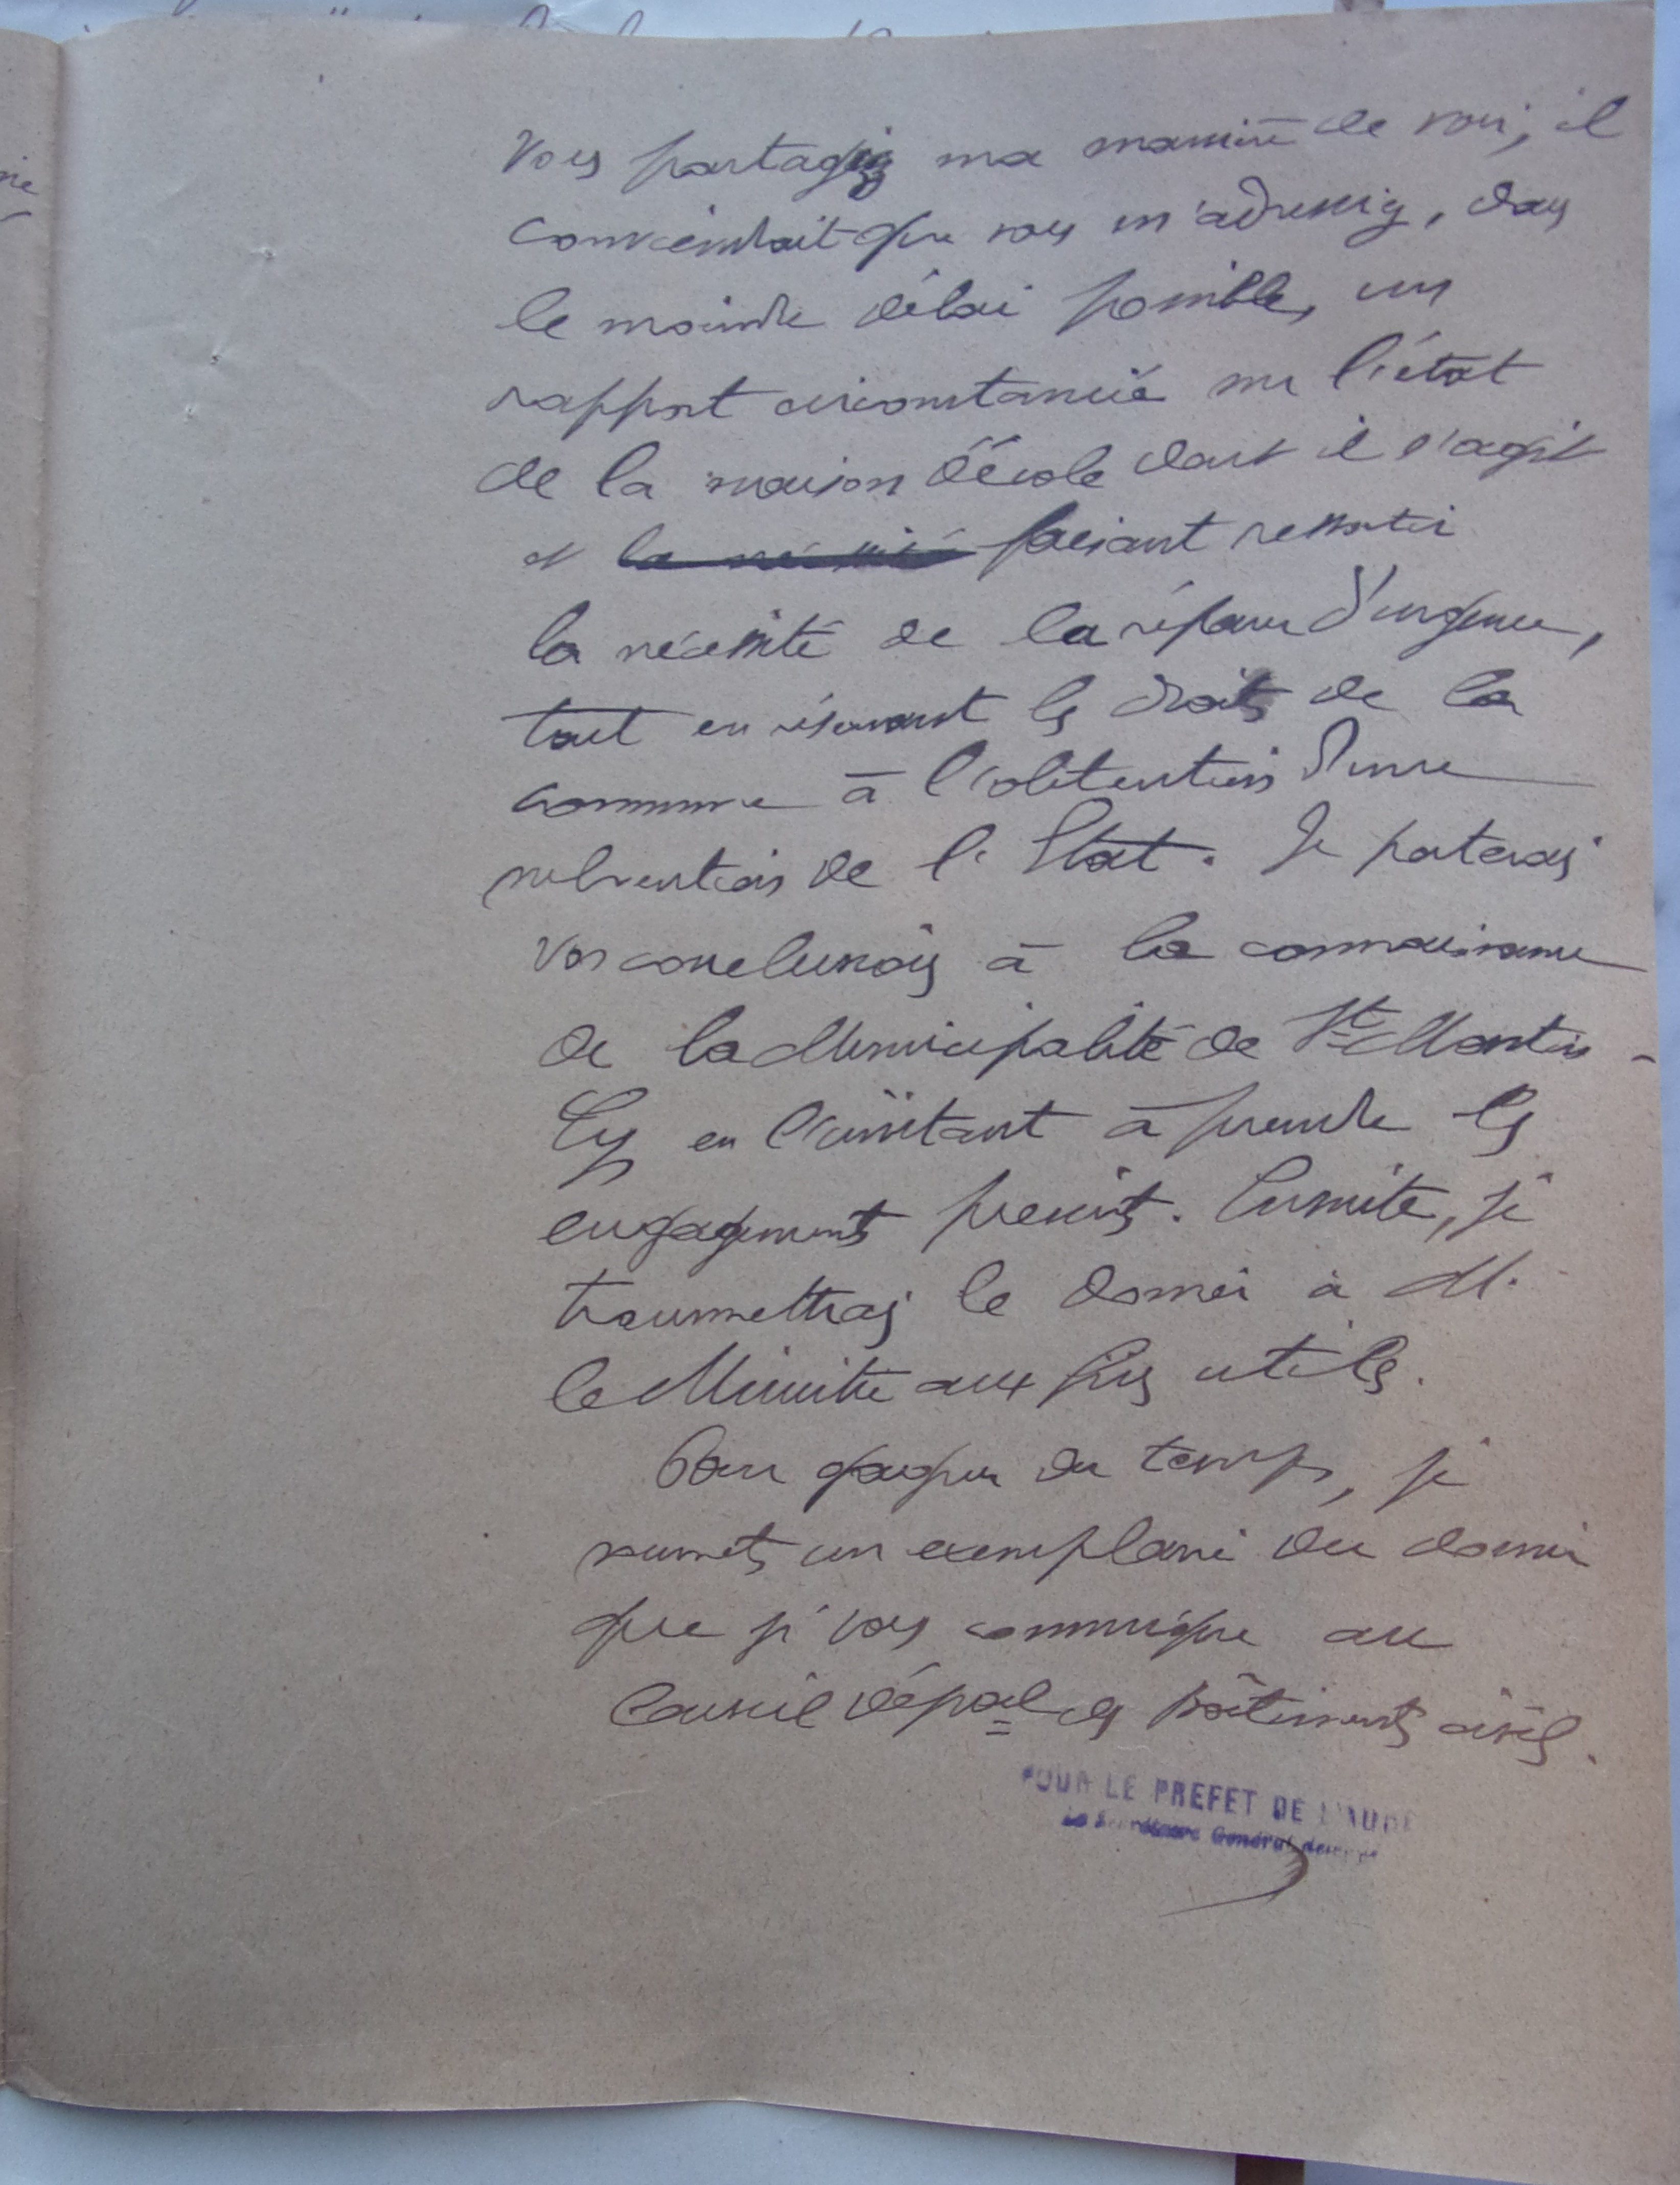 vous partagiez ma manière de voir, il
conviendrait que vous m'adressiez, dans
le moindre délai possible, un
rapport circonstancié sur l'état
de la maison d'école dont il s'agit
et la nécessité faisant ressortir
la nécessité de la réparer d'urgence,
tout en réservant les droits de la
commune à l'obtention d'une
subvention de l'Etat. Je porterai
vos conclusions à la connaissance
de la Municipalité de St Martin-
Lys en l'invitant à prendre les
engagements prescrits. Ensuite, je
transmettrai le dossier à M.
le Ministre aux fins utiles.
Pour gagner du temps, je
soumets un exemplaire du dossier
que je vous communique au
Conseil dépal des bâtiments civils.
POUR LE PREFET DE L'AUDE
Le Secrétaire Général